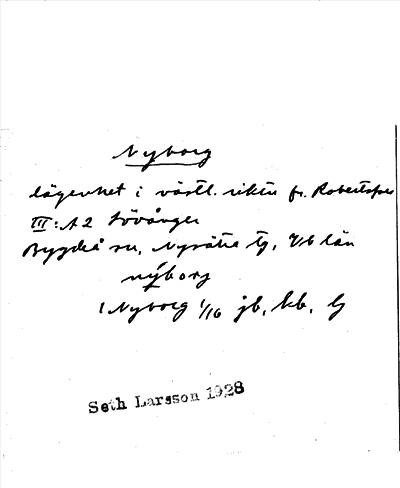 Nyborg
lägenhet i västl. riktn fr. Robertsfors
III: A 2 Lövånger
Bygdeå sn, Nysätra tg, Vb län
nýborg
1 Nyborg 1/16 jb, kb, lj
Seth Larsson 1928